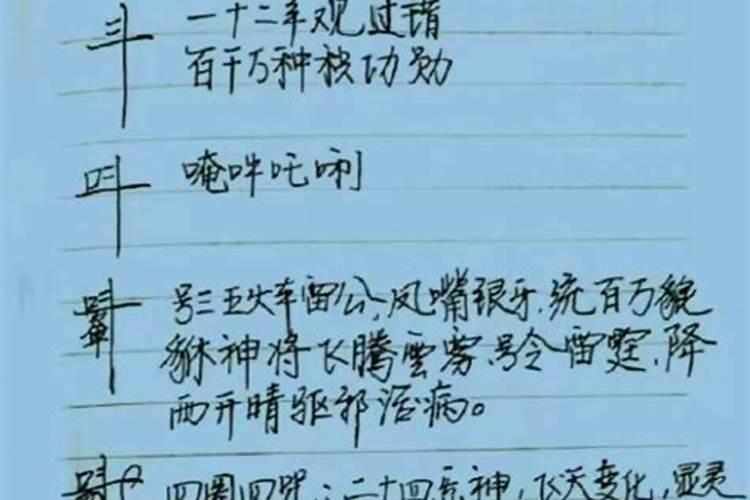 一十二年观过错
百千万种积功勋
唵吽吒唎
号三五火车雷公,凤嘴银牙,统百万貔
貅神将飞腾雲雾,号令雷霆,降
雨开晴驱邪治病。
四圈四咒:二十四炁神,飞天变化,显灵